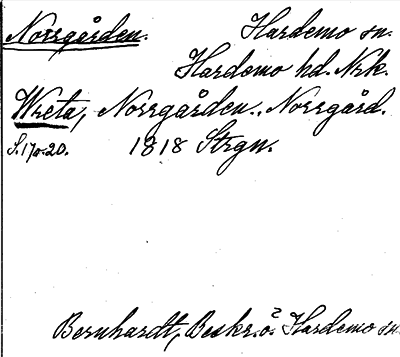 Norrgården. Hardemo sn.
Hardemo hd. Nrk.
Wreta, Norrgården.. Norrgård.
S. 170-20. 1818 Strgn.
Bernhardt, Beskr. ö. Hardemo sn.